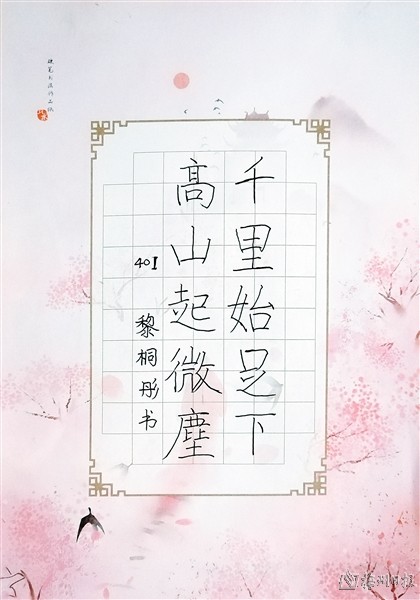 千里始足下
高山起微塵
401
黎桐彤书
硬笔书法作品纸